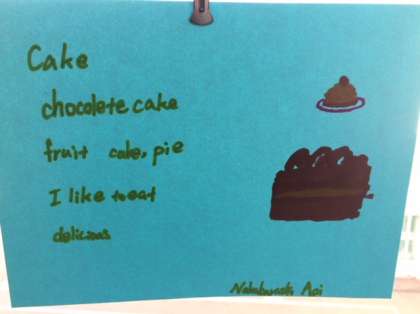 Cake
chocolete cake
fruit cake, pie
I like to eat
delicious
Aoi